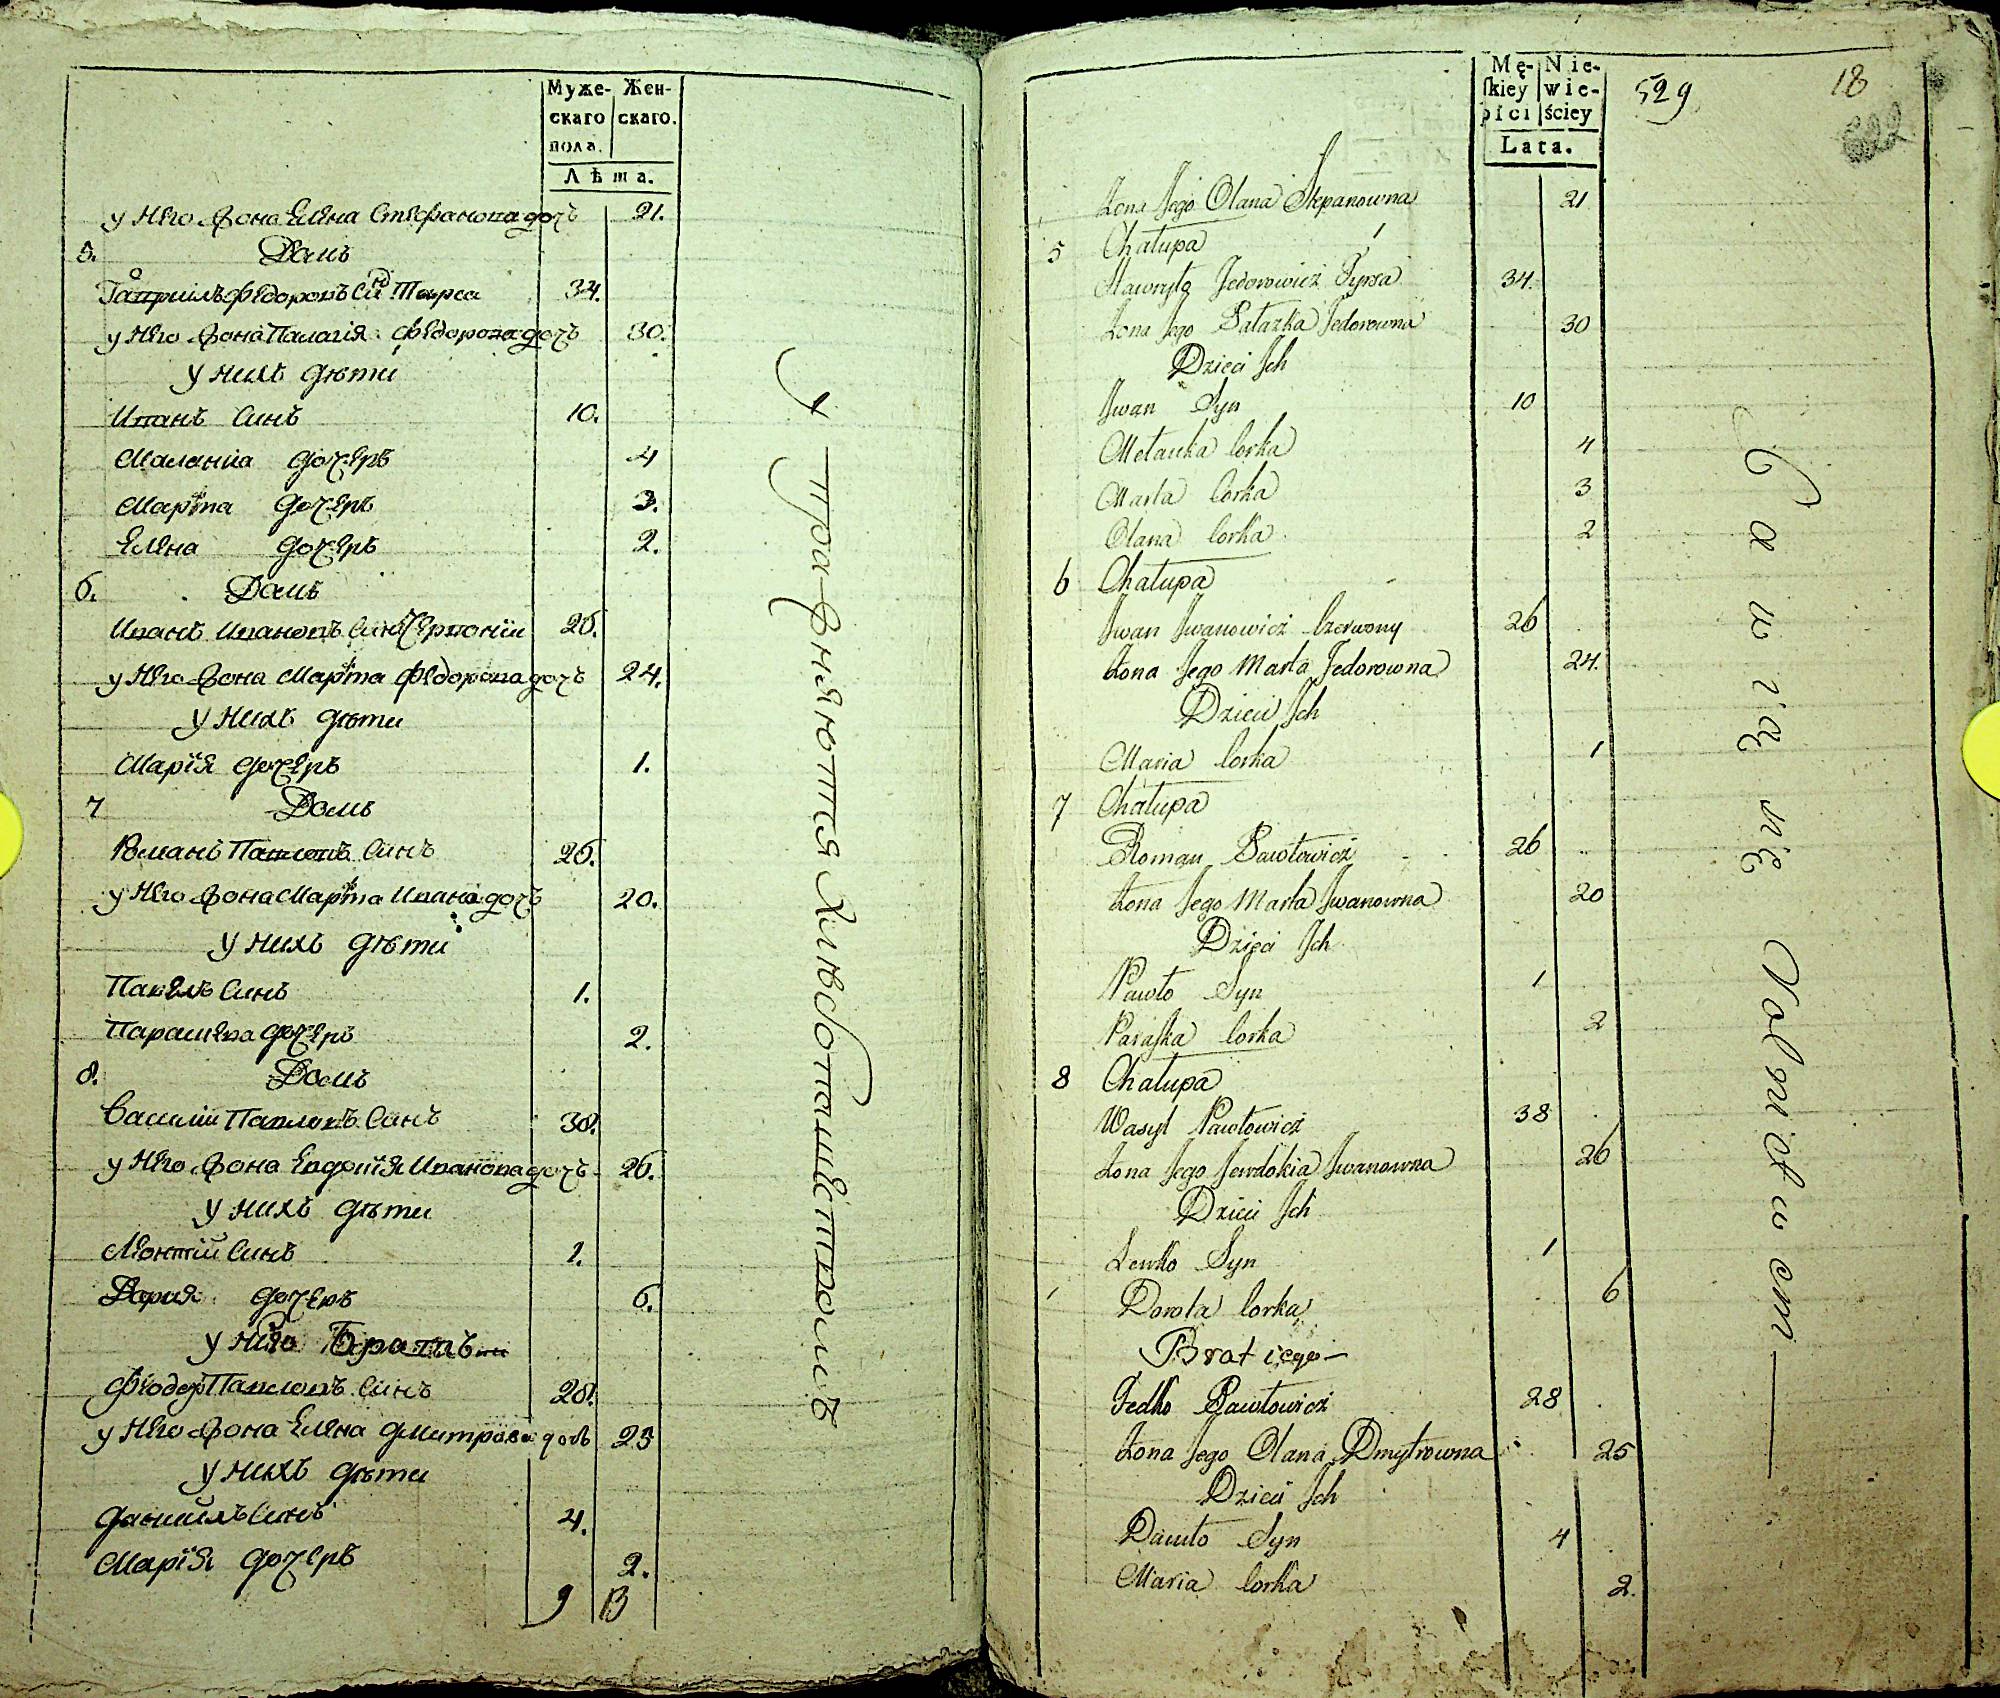 Муже-
скаго
пола.
Жен-
скаго.
Лѣта.
у него жона Елена Стефанова дочъ 21.
5. Домъ
Гавриилъ Федоровъ Синъ Тырса 34.
у него жона Палагія Федорова дочъ 30.
у нихъ дѣти
Иванъ Синъ 10.
Маланиа дочеръ 4
Марта дочеръ 3.
Елена дочеръ 2.
6. Домъ
Иванъ Ивановъ Синъ Червоний 26.
у него жона Марта Федорова дочъ 24.
у нихъ дѣти
Марїя дочеръ 1.
7 Домъ
Романъ Павловъ Синъ 26.
у него жона Марта Ивана дочъ 20.
у нихъ дѣти
Павелъ Синъ 1.
Парашева дочеръ 2.
8. Домъ
Василий Павловъ Синъ 38.
у него жона Евдокїя Иванова дочъ 26.
у нихъ дѣти
Леонтий Синъ 1.
Дария дочеръ 6.
у него Братъ
Феодор Павловъ Синъ 28.
у него жона Елена Дмитрова дочъ 25
у нихъ дѣти
Даниилъ Синъ 4.
Марїя дочеръ 2.
9 13
Упражняются хлѣбопашествомъ
Mę-
skiey
płci
Nie-
wie-
ściey
Lata.
529
18
Żona Jego Olana Stepanowna 21
5 Chałupa
Hawryło Fedorowicz Tyrsa 34.
Żona Jego Pałazka Fedorowna 30
Dzieci Ich
Iwan Syn 10
Mełanka Corka 4
Marta Corka 3
Olana Corka 2
6 Chałupa
Iwan Iwanowicz Czerwony 26
Żona Jego Marta Fedorowna 24.
Dzieci Ich
Maria Corka 1
7 Chałupa
Roman Pawłowicz 26
Żona Jego Marta Iwanowna 20
Dzieci Ich
Pawło Syn 1
Paraska Corka 2
8 Chałupa
Wasyl Pawłowicz 38
Żona Jego Jewdokia Iwanowna 26
Dzieci Ich
Lewko Syn 1
Dorota Corka 6
Brat iego
Fedko Pawłowicz 28
Żona Jego Olana Dmytrowna 25
Dzieci Ich
Daniło Syn 4
Maria Corka 2.
Bawią się Rolnictwem